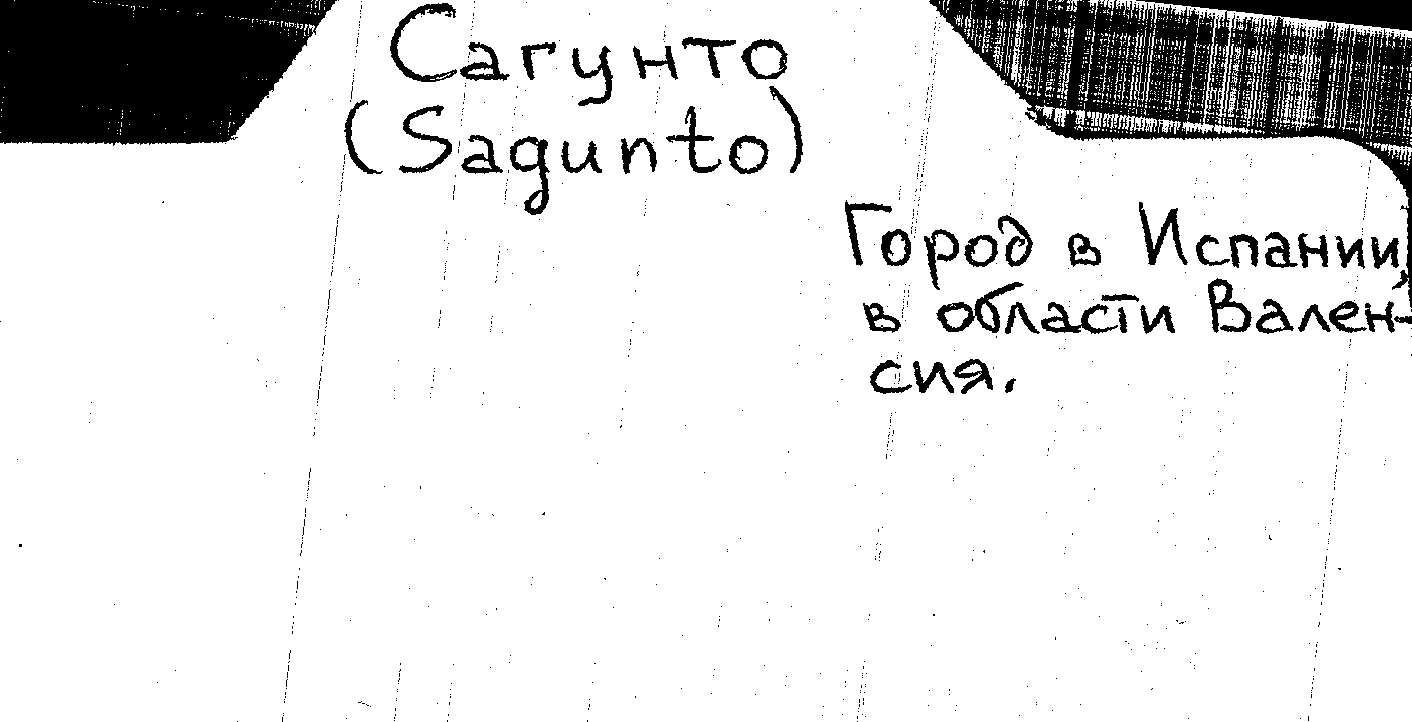 Сагунто
(Sagunto)
Город в Испании,
в области Вален-
сия.